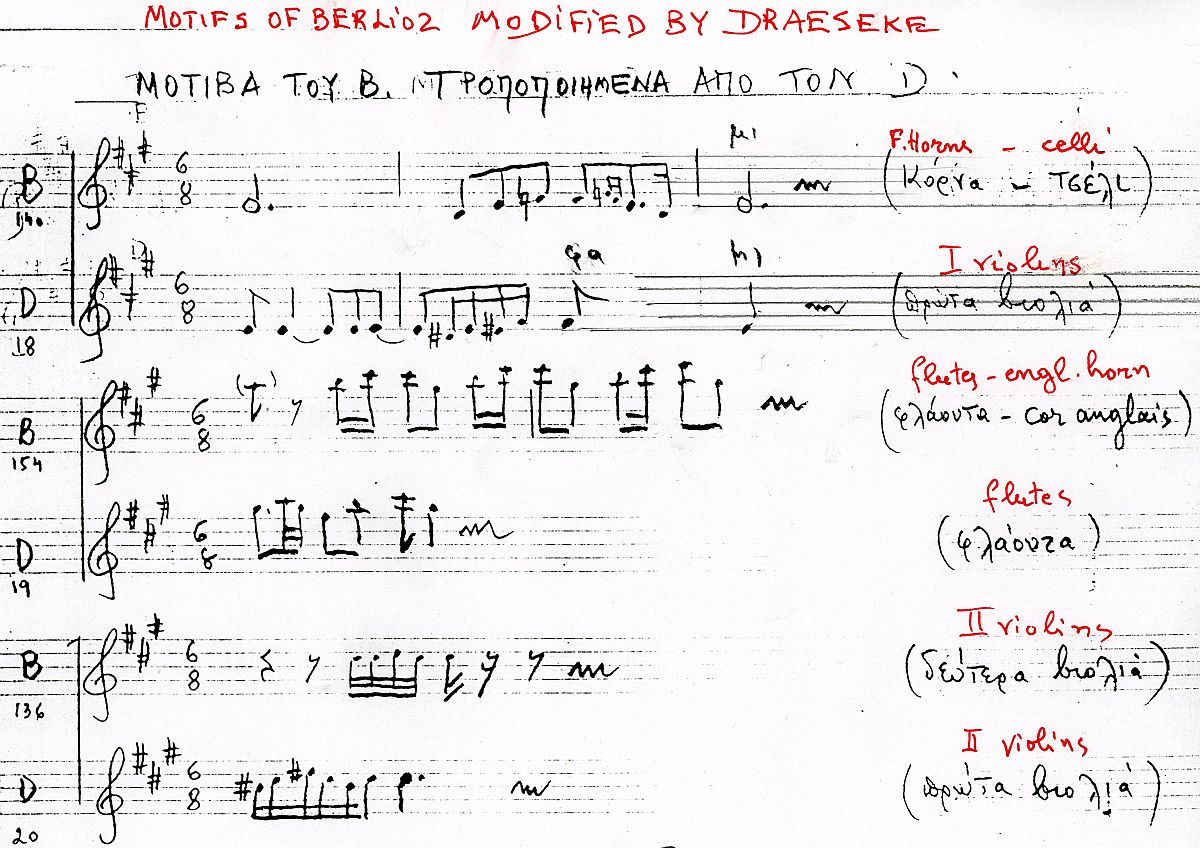 MOTIFS OF BERLIOZ MODIFIED BY DRAESEKE
ΜΟΤΙΒΑ ΤΟΥ Β. ΤΡΟΠΟΠΟΙΗΜΕΝΑ ΑΠΟ ΤΟΝ D.
μι F. Horns - celli
B 6 8 (κόρνα - τσέλι)
140
φα μι I violins
D 6 8 (πρώτα βιολιά)
18
flutes - engl. horn
B 6 8 (φλάουτα - cor anglais)
154
flutes
D 6 8 (φλάουτα)
19
II violins
B 6 8 (δεύτερα βιολιά)
136
II violins
D 6 8 (πρώτα βιολιά)
20